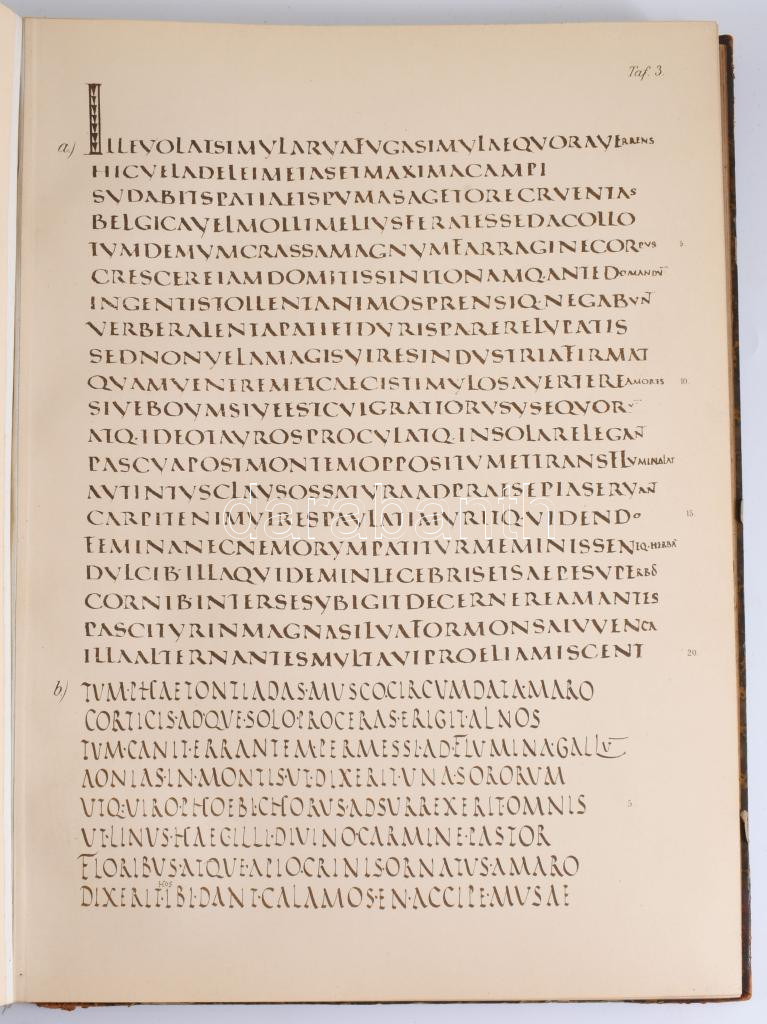 Taf. 3.
a) ILLEVOLATSIMVLARVAFVGASIMVLAEQVORAVERRENS
HICVELADELEIMETASETMAXIMACAMPI
SVDABITSPATIAETSPVMASAGETORECRVENTAS
BELGICAVELMOLLIMELIVSFERATESSEDACOLLO
TVMDEMVMCRASSAMAGNVMFARRAGINECORPVS 5.
CRESCEREIAMDOMITISSINITONAMQ·ANTEDOMANDV̄
INGENTISTOLLENTANIMOSPRENSIQ·NEGABVN̄
VERBERALENTAPATIETDVRISPARERELVPATIS
SEDNONVELAMAGISVIRESINDVSTRIAFIRMAT
QVAMVENEREMETCAECISTIMVLOSAVERTEREAMORIS 10.
SIVEBOVMSIVEESTCVIGRATIORVSVSEQVORV̄
ATQ·IDEOTAVROSPROCVLATQ·INSOLARELEGAN̄
PASCVAPOSTMONTEMOPPOSITVMETTRANSFLVMINALAT
AVTINTVSCLAVSOSSATVRAADPRAESEPIASERVAN̄
CARPITENIMVIRESPAVLATIMVRITQ·VIDENDO 15.
FEMINANECNEMORVMPATITVRMEMINISSENEQ·HERBĀ
DVLCIB·ILLAQVIDEMINLECEBRISETSAEPESVPERBŌ
CORNIB·INTERSESVBIGITDECERNEREAMANTES
PASCITVRINMAGNASILVAFORMONSAIVVENCA
ILLAALTERNANTESMVLTAVIPROELIAMISCENT 20.
b) TVM·PHAETONTIADAS·MVSCO·CIRCVMDATA·MARO
CORTICIS·ADQVE·SOLO·PROCERAS·ERIGIT·ALNOS
TVM·CANIT·ERRANTEM·PERMESSI·AD·FLVMINA·GALLV̄
AONIAS·IN·MONTIS·VT·DIXERIT·VNA·SORORVM
VTQ·VIRO·PHOEBI·CHORVS·ADSVRREXERIT·OMNIS 5
VT·LINVS·HAEC·ILLI·DIVINO·CARMINE·PASTOR
FLORIBVS·ATQVE·APIO·CRINIS·ORNATVS·AMARO
DIXERIT·HOS·TIBI·DANT·CALAMOS·EN·ACCIPE·MVSAE
darabanth